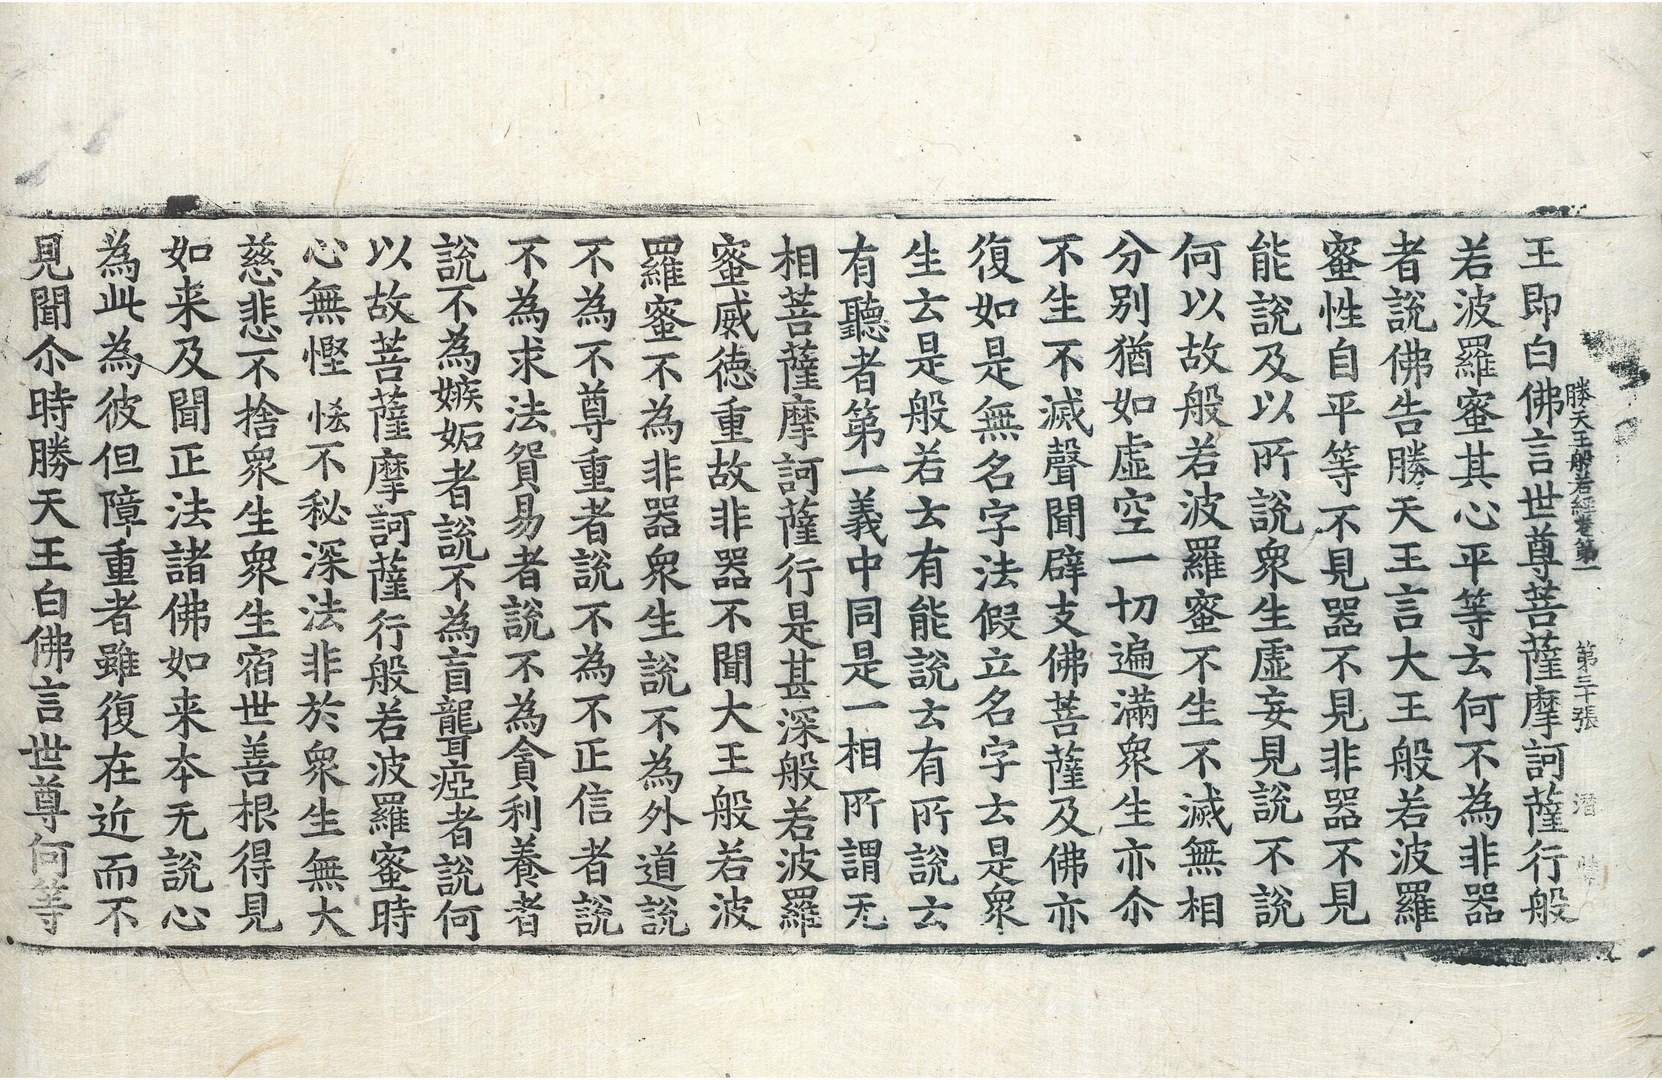 勝天王般若經卷第一 第三十張 潛
王即白佛言世尊菩薩摩訶薩行般
若波羅蜜其心平等云何不為非器
者說佛告勝天王言大王般若波羅
蜜性自平等不見器不見非器不見
能說及以所說衆生虛妄見說不說
何以故般若波羅蜜不生不滅無相
分別猶如虛空一切遍滿衆生亦尒
不生不滅聲聞辟支佛菩薩及佛亦
復如是無名字法假立名字云是衆
生云是般若云有能說云有所說云
有聽者第一義中同是一相所謂无
相菩薩摩訶薩行是甚深般若波羅
蜜威德重故非器不聞大王般若波
羅蜜不為非器衆生說不為外道說
不為不尊重者說不為不正信者說
不為求法貿易者說不為貪利養者
說不為嫉妬者說不為盲聾瘂者說何
以故菩薩摩訶薩行般若波羅蜜時
心無慳悋不秘深法非於衆生無大
慈悲不捨衆生衆生宿世善根得見
如来及聞正法諸佛如来本无說心
為此為彼但障重者雖復在近而不
見聞尒時勝天王白佛言世尊何等